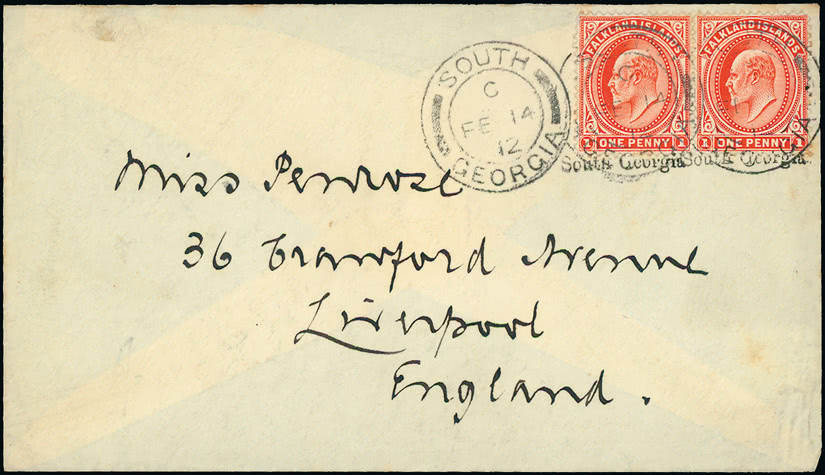 SOUTH
C
FE 14
12
GEORGIA
FALKLAND ISLANDS
1 ONE PENNY 1
FALKLAND ISLANDS
1 ONE PENNY 1
South Georgia.
South Georgia.
Miss Penrose
36 Crawford Avenue
Liverpool
England.